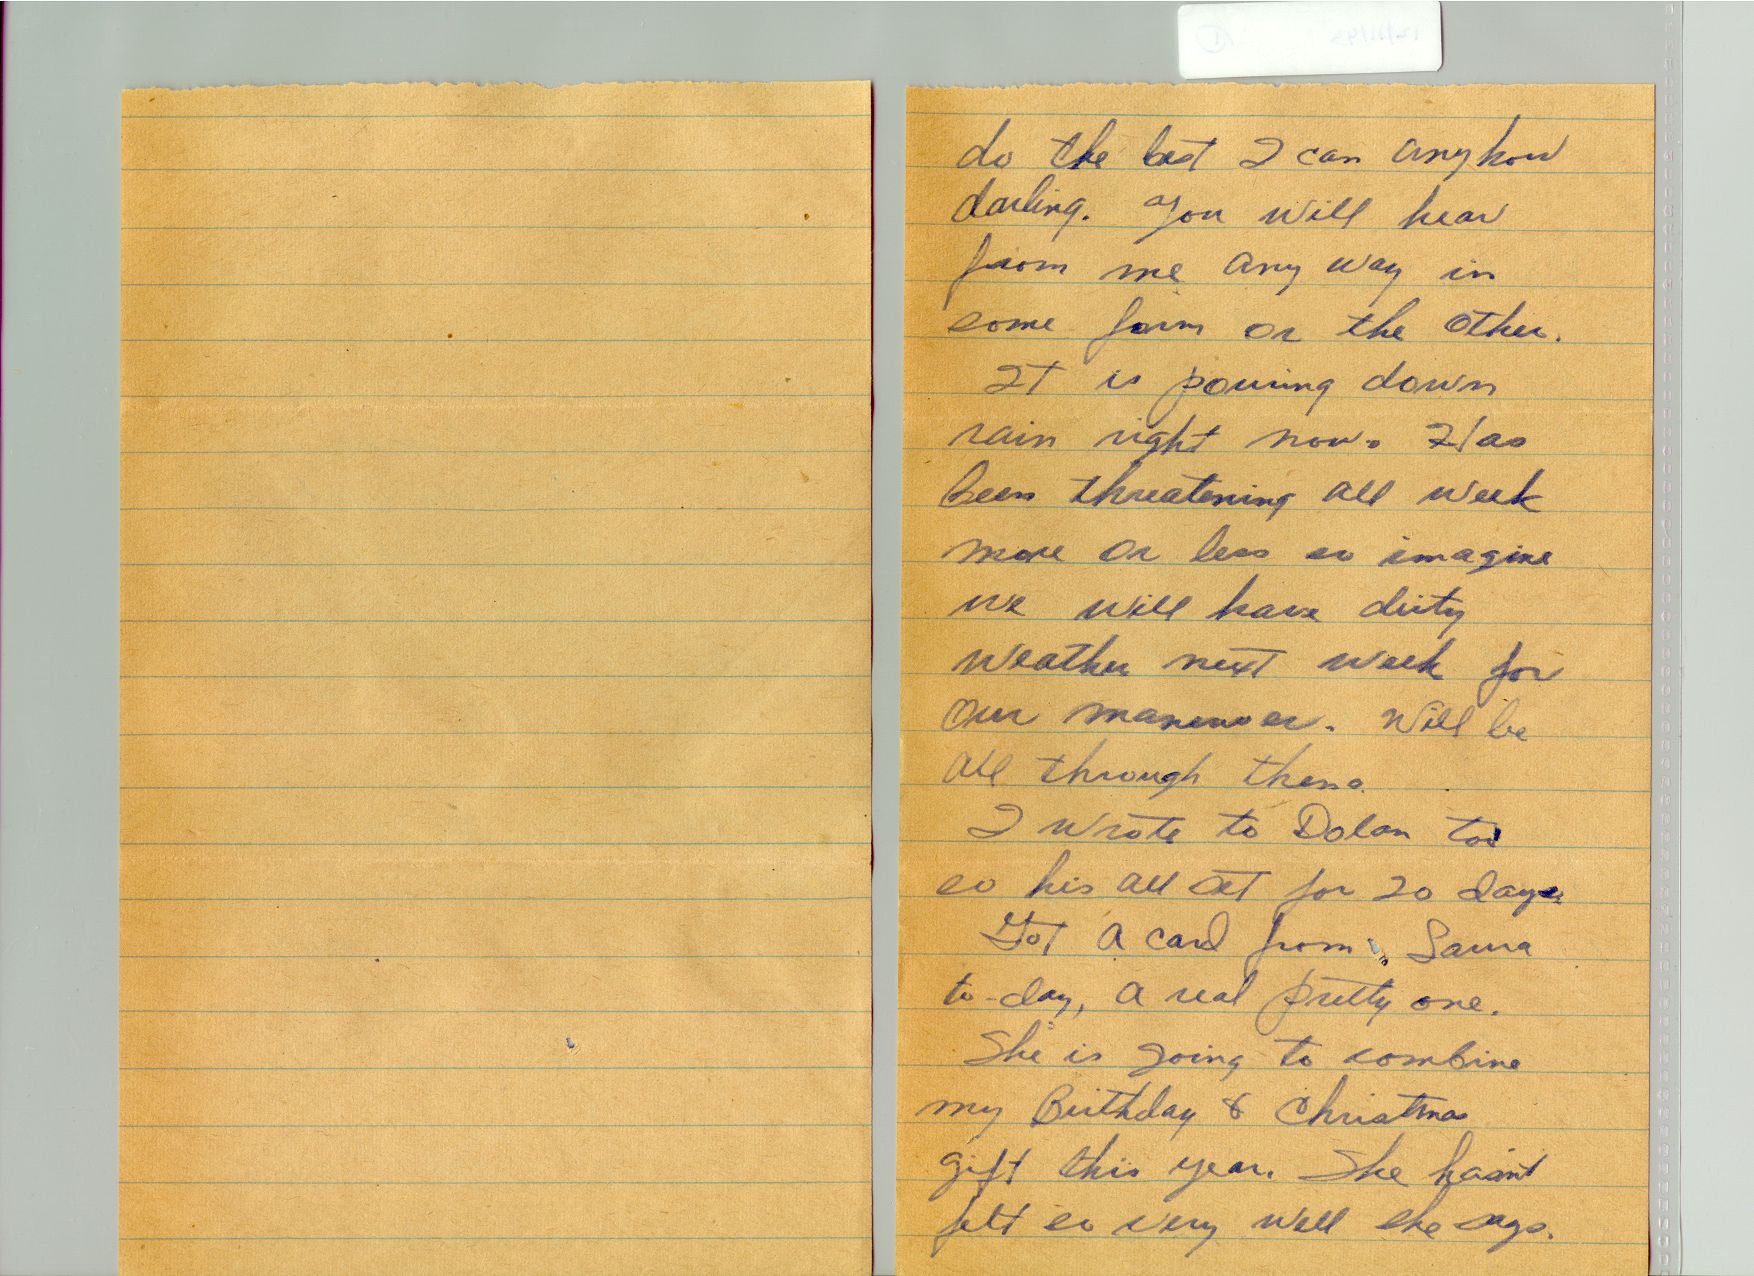 do the best I can anyhow
darling. You will hear
from me any way in
some form or the other.
It is pouring down
rain right now. Has
been threatening all week
more or less so imagine
we will have dirty
weather next week for
our maneuver. Will be
all through then.
I wrote to Dolan too
so his all set for 20 days.
Got a card from Laura
to-day, a real pretty one.
She is going to combine
my Birthday & Christmas
gift this year. She hasn't
felt so very well she says.